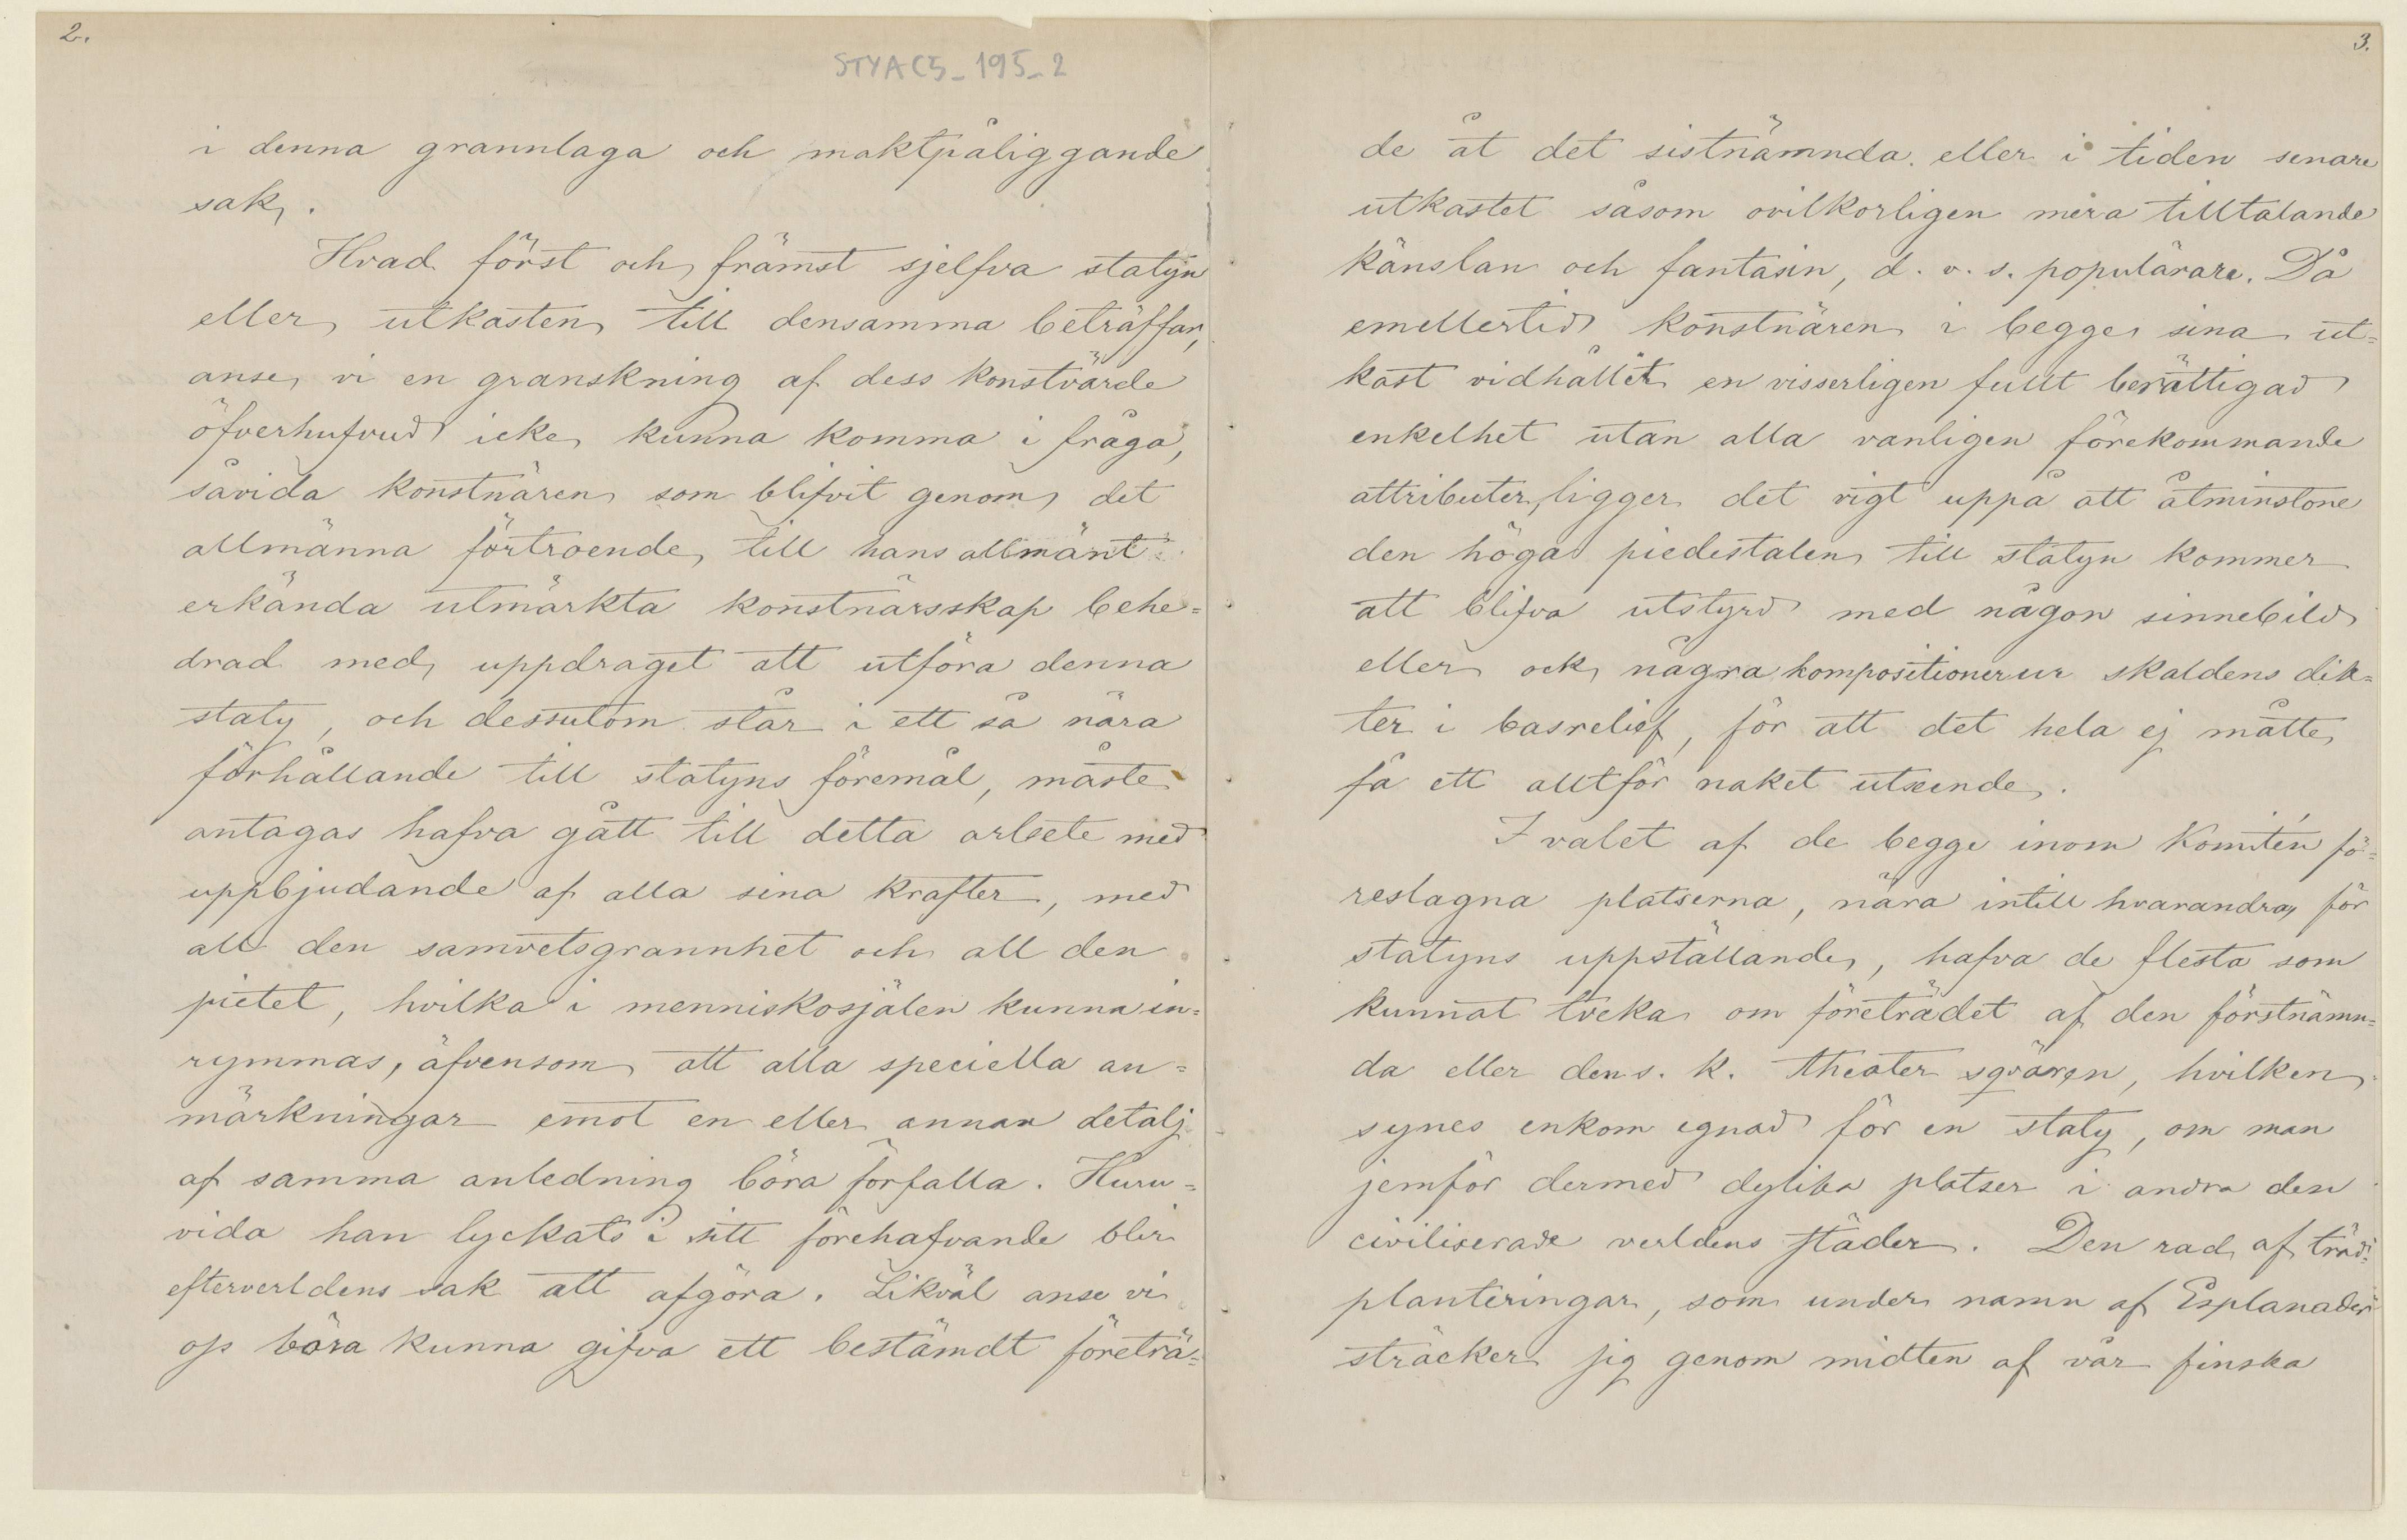 2.
STYAC5_195_2
i denna grannlaga och maktpåliggande
sak.
Hvad först och främst sjelfva statyn
eller utkasten till densamma beträffar,
anse vi en granskning af dess konstvärde
öfverhufvud icke kunna komma i fråga,
såvida konstnären som blifvit genom det
allmänna förtroende till hans allmänt
erkända utmärkta konstnärsskap behe=
drad med uppdraget att utföra denna
staty, och dessutom står i ett så nära
förhållande till statyns föremål, måste
antagas hafva gått till detta arbete med
uppbjudande af alla sina krafter, med
all den samvetsgrannhet och all den
pietet, hvilka i menniskosjälen kunna in=
rymmas, äfvensom att alla speciella an=
märkningar emot en eller annan detalj
af samma anledning böra förfalla. Huru=
vida han lyckats i sitt förehafvande blir
efterverldens sak att afgöra. Likväl anse vi
oss böra kunna gifva ett bestämdt företrä=
3.
de åt det sistnämnda eller i tiden senare
utkastet såsom ovilkorligen mera tilltalande
känslan och fantasin, d. v. s. populärare. Då
emellertid konstnären i begge sina ut=
kast vidhållit en visserligen fullt berättigad
enkelhet utan alla vanligen förekommande
attributer, ligger det vigt uppå att åtminstone
den höga piedestalen till statyn kommer
att blifva utstyrd med någon sinnebild
eller ock några kompositioner ur skaldens dik=
ter i basrelief, för att det hela ej måtte
få ett alltför naket utseende.
I valet af de begge inom Komitén fö=
reslagna platserna, nära intill hvarandra, för
statyns uppställande, hafva de flesta som
kunnat tveka om företrädet af den förstnämn=
da eller den s. k. theater sqvären, hvilken
synes enkom egnad för en staty, om man
jemför dermed dylika platser i andra den
civiliserade verldens städer. Den rad af träd=
planteringar, som under namn af Esplanaden
sträcker sig genom midten af vår finska